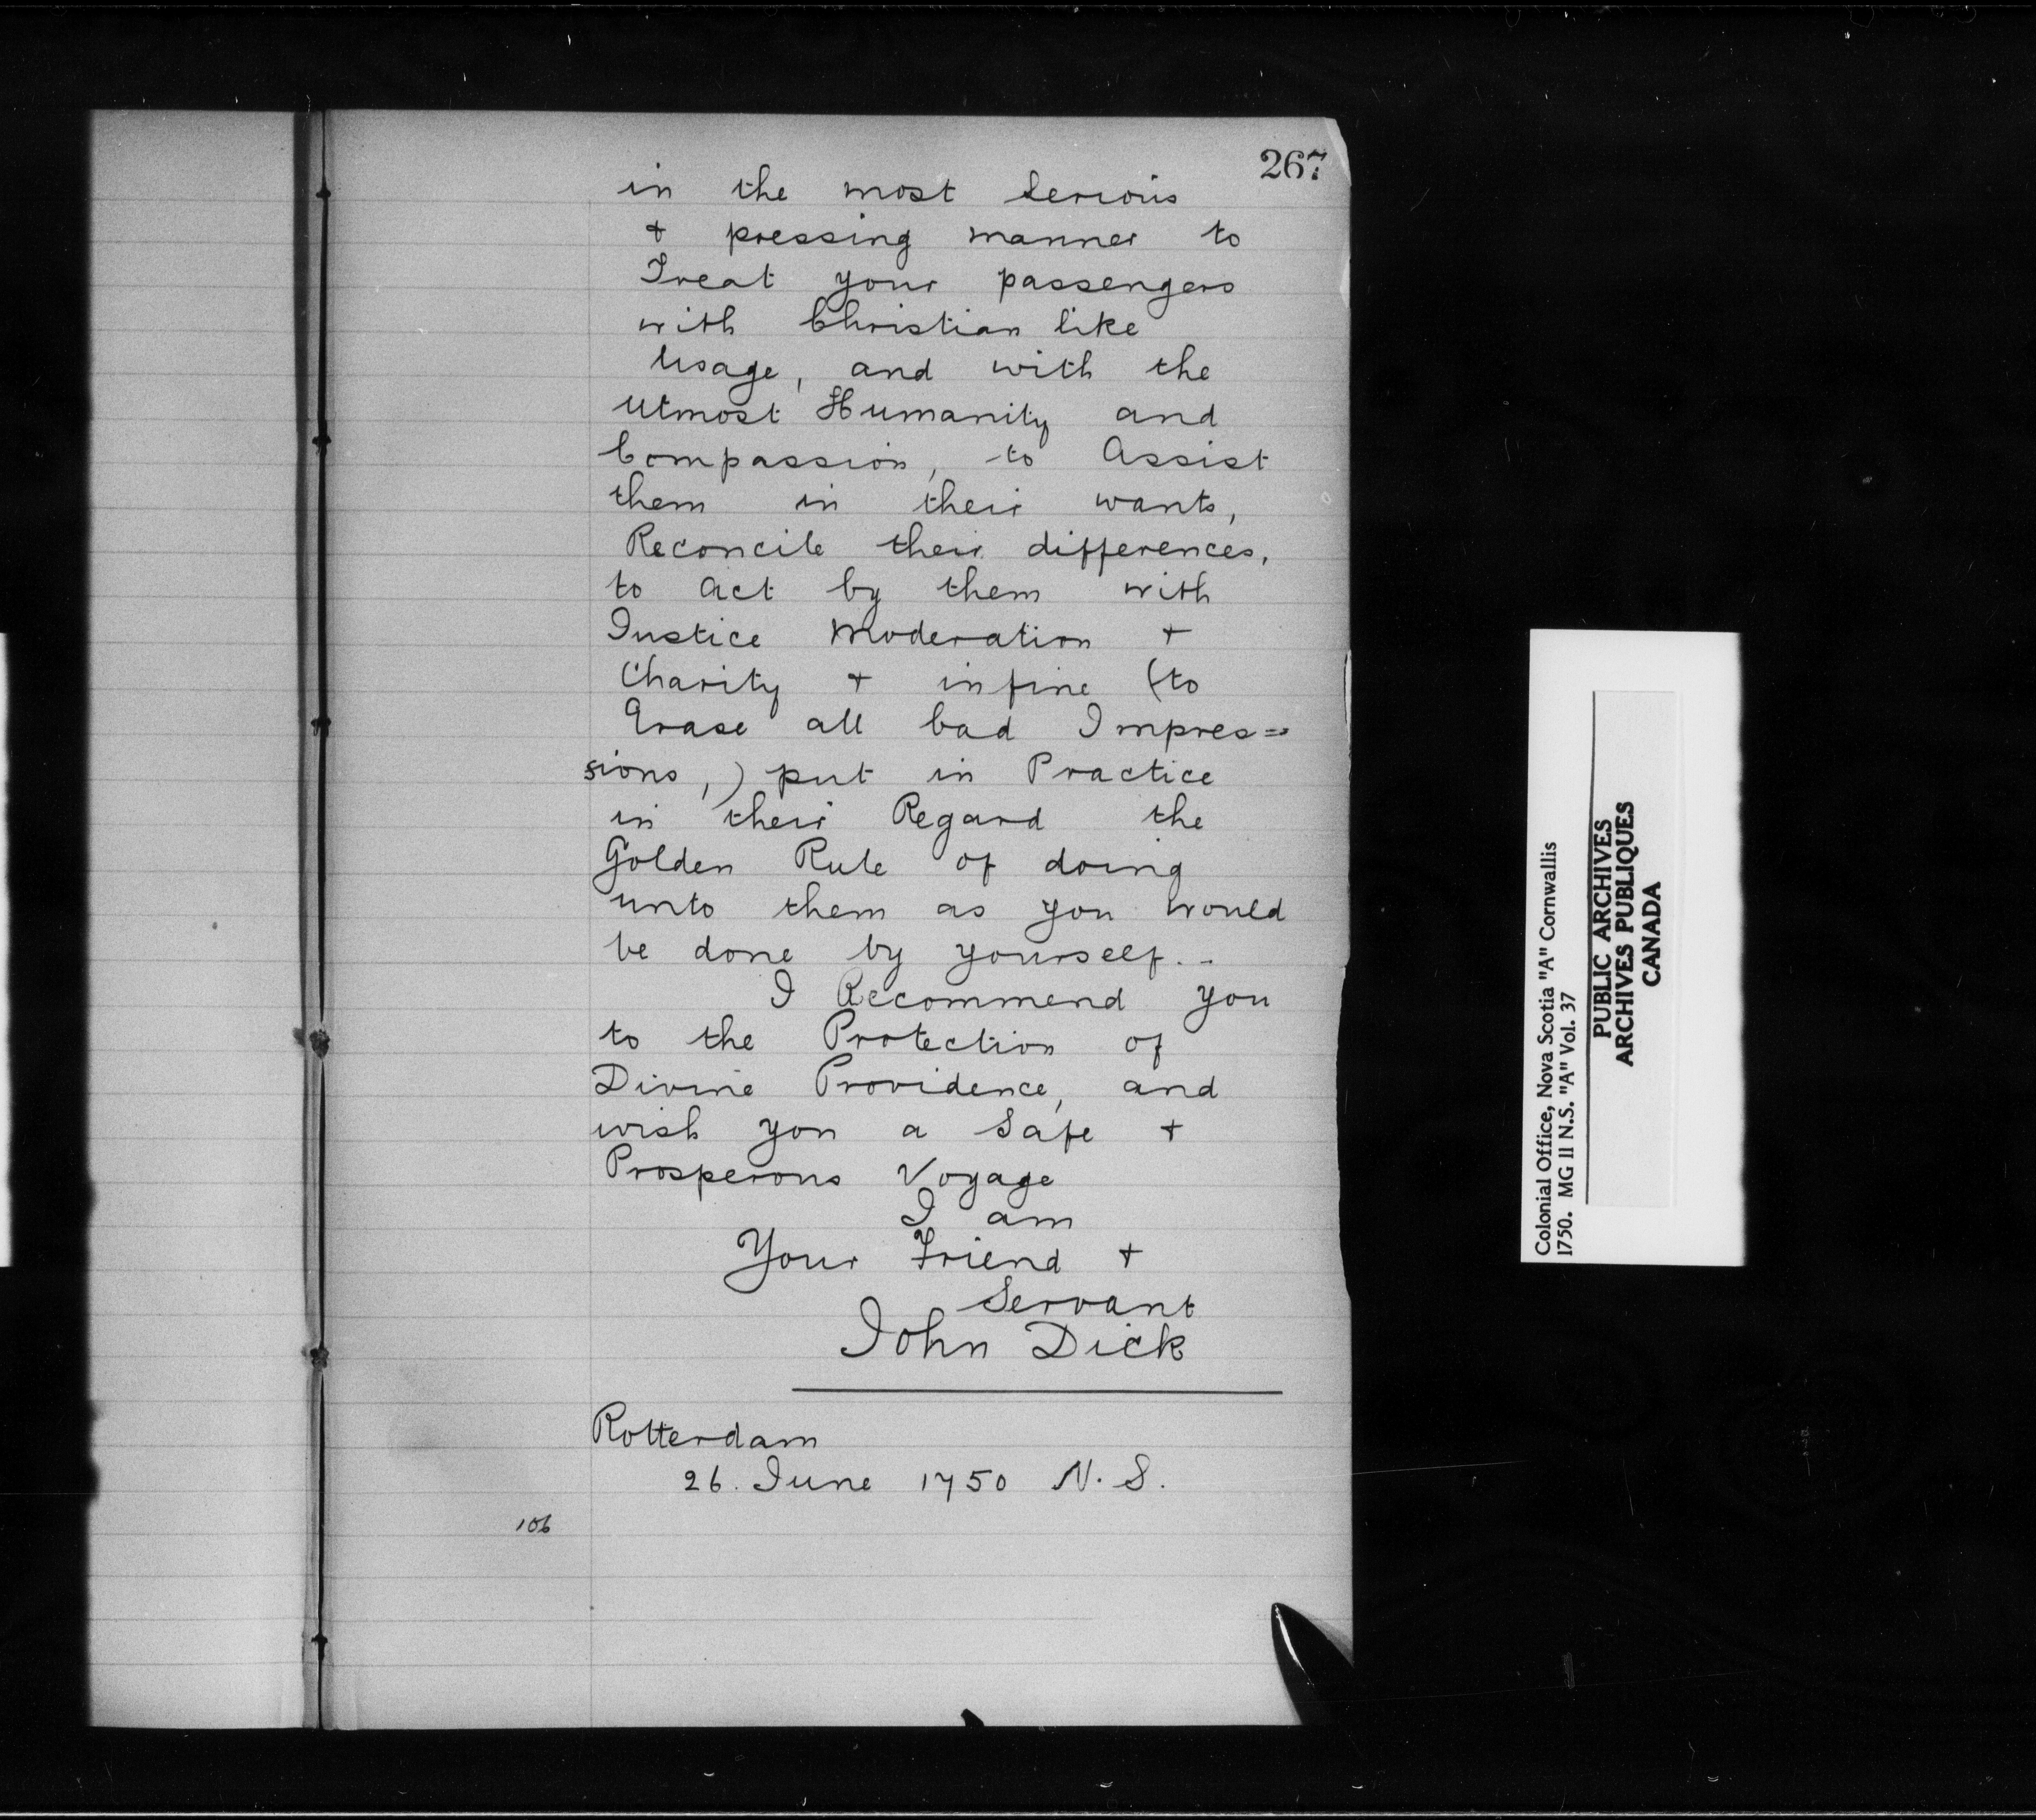 267
in the most Serious
& pressing manner to
Treat your passengers
with Christian like
Usage, and with the
Utmost Humanity and
Compassion, to Assist
them in their wants,
Reconcile their differences,
to Act by them with
Justice Moderation &
Charity & in fine (to
Erase all bad Impres=
sions,) put in Practice
in their Regard the
Golden Rule of doing
unto them as you would
be done by yourself. -
I Recommend you
to the Protection of
Divine Providence, and
wish you a Safe &
Prosperous Voyage
I am
Your Friend &
Servant
John Dick
Rotterdam
26. June 1750 N. S.
106
Colonial Office, Nova Scotia "A" Cornwallis
1750. MG 11 N.S. "A" Vol. 37
PUBLIC ARCHIVES
ARCHIVES PUBLIQUES
CANADA